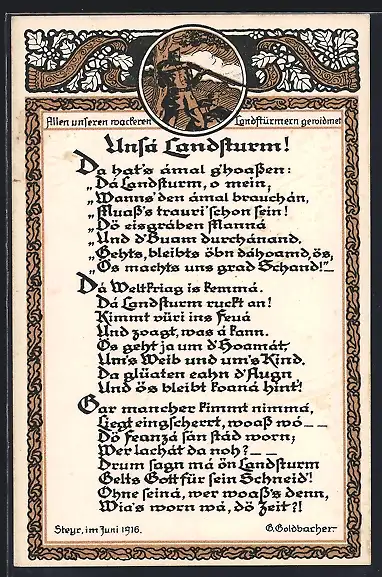 Allen unseren wackeren Landstürmern gewidmet
Unsá Landsturm!
Da hat's ámal g'hoaßen:
„Dá Landsturm, o mein,
„Wanns' den ámal brauchán,
„Muaß's trauri' schon sein!
„Dö eisgráben Manná
„Und d'Buam durchánand,
„Gehts, bleibts öbn dáhoamd, ös,
„Ös machts uns grad Schand!" –
Dá Weltkriag is kemmá.
Dá Landsturm ruckt an!
Kimmt vüri ins Feuá
Und zoagt, was á kann.
Es geht ja um d'Hoamát,
Um's Weib und um's Kind.
Da glüaten eahn d'Augn
Und ös bleibt koaná hint'!
Gar mancher kimmt nimmá,
Liegt eingscherrt, woaß wó – –
Dö Feanzá sán stád worn;
Wer lachát da noh? – –
Drum sagn má ön Landsturm
Gelts Gott für sein Schneid'!
Ohne seiná, wer woaß's denn,
Wia's worn wá, dö Zeit?!
Steyr, im Juni 1916.
G. Goldbacher.